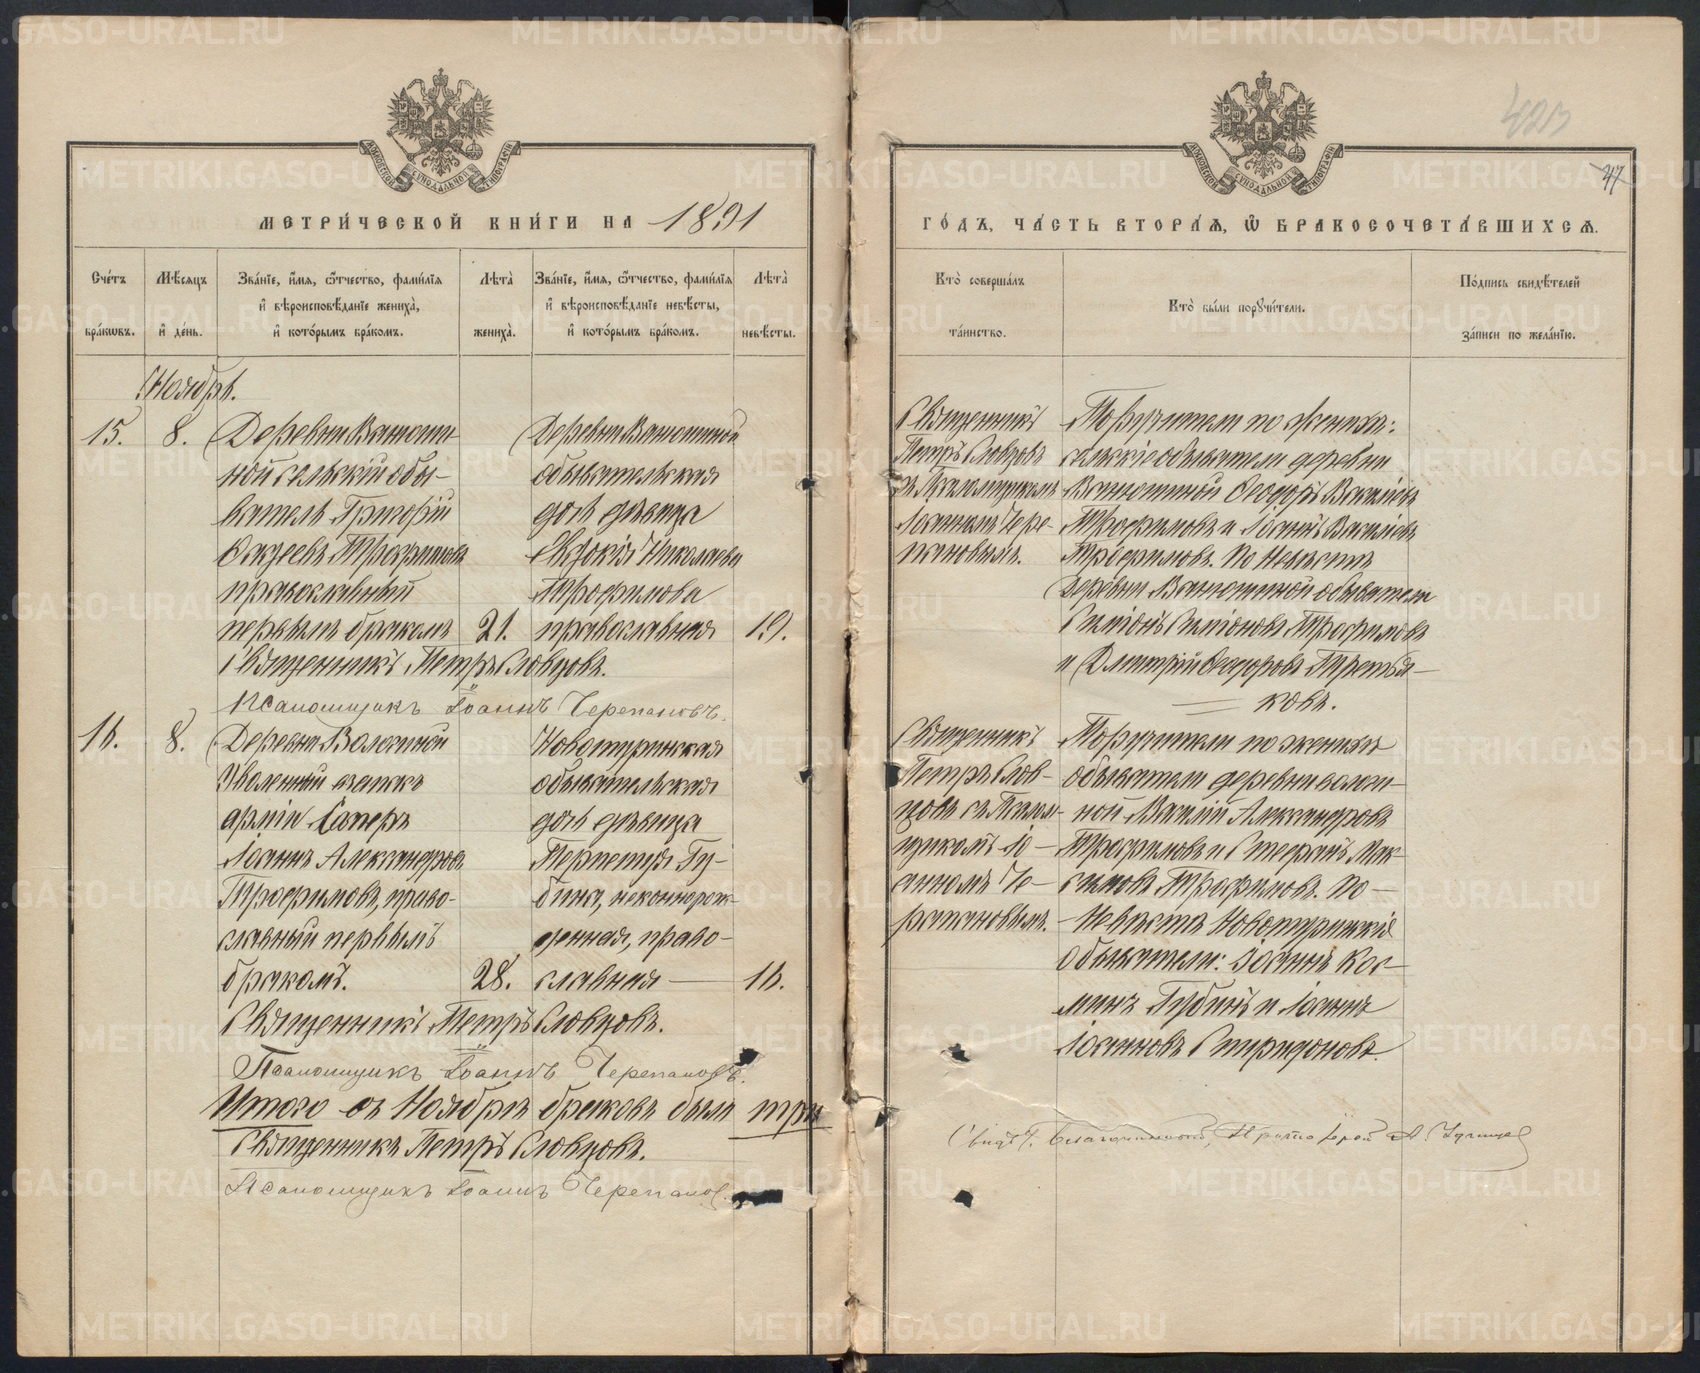 МЕТРИ́ЧЕСКОЙ КНИ́ГИ НА 1891
Сче́тъ бра́кѡвъ.
Мѣ́сяцъ и҆ де́нь.
Зва́нїе, и҆́мя, ѻ҆́тчество, фами́лїя
и҆ вѣроисповѣ́данїе жениха̀,
и҆ кото́рымъ бра́комъ.
Лѣта̀ жениха̀.
Зва́нїе, и҆́мя, ѻ҆́тчество, фами́лїя
и҆ вѣроисповѣ́данїе невѣ́сты,
и҆ кото́рымъ бра́комъ.
Лѣта̀ невѣ́сты.
Ноябрь.
15. 8.
Деревни Ванюши-
ной сельскій обы-
ватель Григорій
Трофимовъ
православный
первымъ бракомъ
21.
Деревни Ванюшиной
обывательская
дочь девица
Евдокія Николаева
Трофимова
православная
19.
Священникъ Петръ Словцовъ.
Псаломщикъ Іоаннъ Черепановъ.
16. 8.
Деревни
Уволенный
арміи Саперъ
Іоаннъ Александровъ
Трофимовъ, право-
славный первымъ
бракомъ.
28.
Новотуринская
обывательская
дочь девица
Перпетуя Гу-
бина, незаконнорож-
денная, право-
славная
16.
Священникъ Петръ Словцовъ.
Псаломщикъ Іоаннъ Черепановъ.
Итого въ Ноябре браковъ было три
Священникъ Петръ Словцовъ.
Псаломщикъ Іоаннъ Черепановъ.
47
ГО́ДЪ, ЧА́СТЬ ВТОРА́Я, Ѡ҆ БРАКОСОЧЕТА́ВШИХСЯ.
Кто̀ соверша́лъ
та́инство.
Кто̀ бы́ли порꙋчи́тели.
По́дпись свидѣ́телей
за́писи по жела́нїю.
Священникъ
Петръ Словцовъ
съ Псаломщикомъ
Іоанномъ Чере-
пановымъ.
Поручители по женихе:
сельскіе обыватели деревни
Ванюшиной Ѳеодоръ Васильевъ
Трофимовъ и Іоаннъ Васильевъ
Трофимовъ. По Невесте
деревни Ванюшиной обыватели
Симеонъ Симеоновъ Трофимовъ
и Дмитрій Ѳеодоровъ Третья-
ковъ.
Священникъ
Петръ Слов-
цовъ съ Псалом-
щикомъ Іо-
анномъ Че-
репановымъ.
Поручители по женихе
обыватели деревни
ной Василій Александровъ
Трофимовъ и Стефанъ Мак-
симовъ Трофимовъ. По
Невесте Новотуринскіе
обыватели: Іоаннъ Кос-
минъ Губинъ и Іоаннъ
Іоанновъ Спиридоновъ.
Благочинный, Протоіерей
METRIKI.GASO-URAL.RU